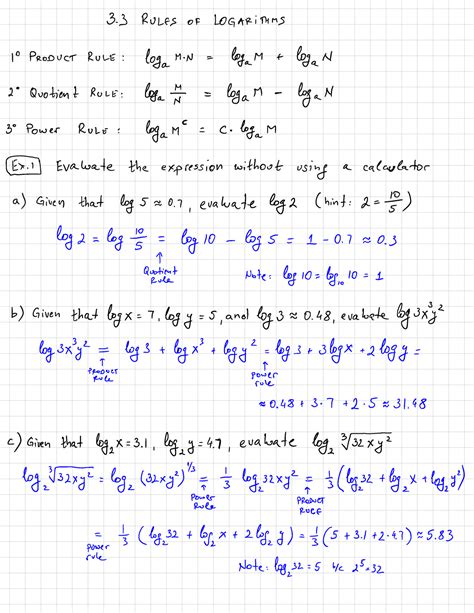 3.3 RULES OF LOGARITHMS
1° PRODUCT RULE: logₐ M·N = logₐ M + logₐ N
2° Quotient RULE: logₐ M/N = logₐ M − logₐ N
3° Power RULE: logₐ Mᶜ = C·logₐ M
Ex.1 Evaluate the expression without using a calculator
a) Given that log 5 ≈ 0.7, evaluate log 2 (hint: 2 = 10/5)
log 2 = log 10/5 = log 10 − log 5 = 1 − 0.7 ≈ 0.3
↑ Quotient Rule
Note: log 10 = log₁₀ 10 = 1
b) Given that log x = 7, log y = 5, and log 3 ≈ 0.48, evaluate log 3x³y²
log 3x³y² = log 3 + log x³ + log y² = log 3 + 3 log x + 2 log y =
↑ PRODUCT Rule ↑ Power rule
≈ 0.48 + 3·7 + 2·5 ≈ 31.48
c) Given that log₂ x = 3.1, log₂ y = 4.7, evaluate log₂ ∛32xy²
log₂ ∛32xy² = log₂ (32xy²)^1/3 = 1/3 log₂ 32xy² = 1/3 (log₂ 32 + log₂ x + log₂ y²)
↑ Power Rule ↑ PRODUCT RULE
= 1/3 (log₂ 32 + log₂ x + 2 log₂ y) = 1/3 (5 + 3.1 + 2·4.7) ≈ 5.83
↑ Power rule
Note: log₂ 32 = 5 b/c 2⁵ = 32